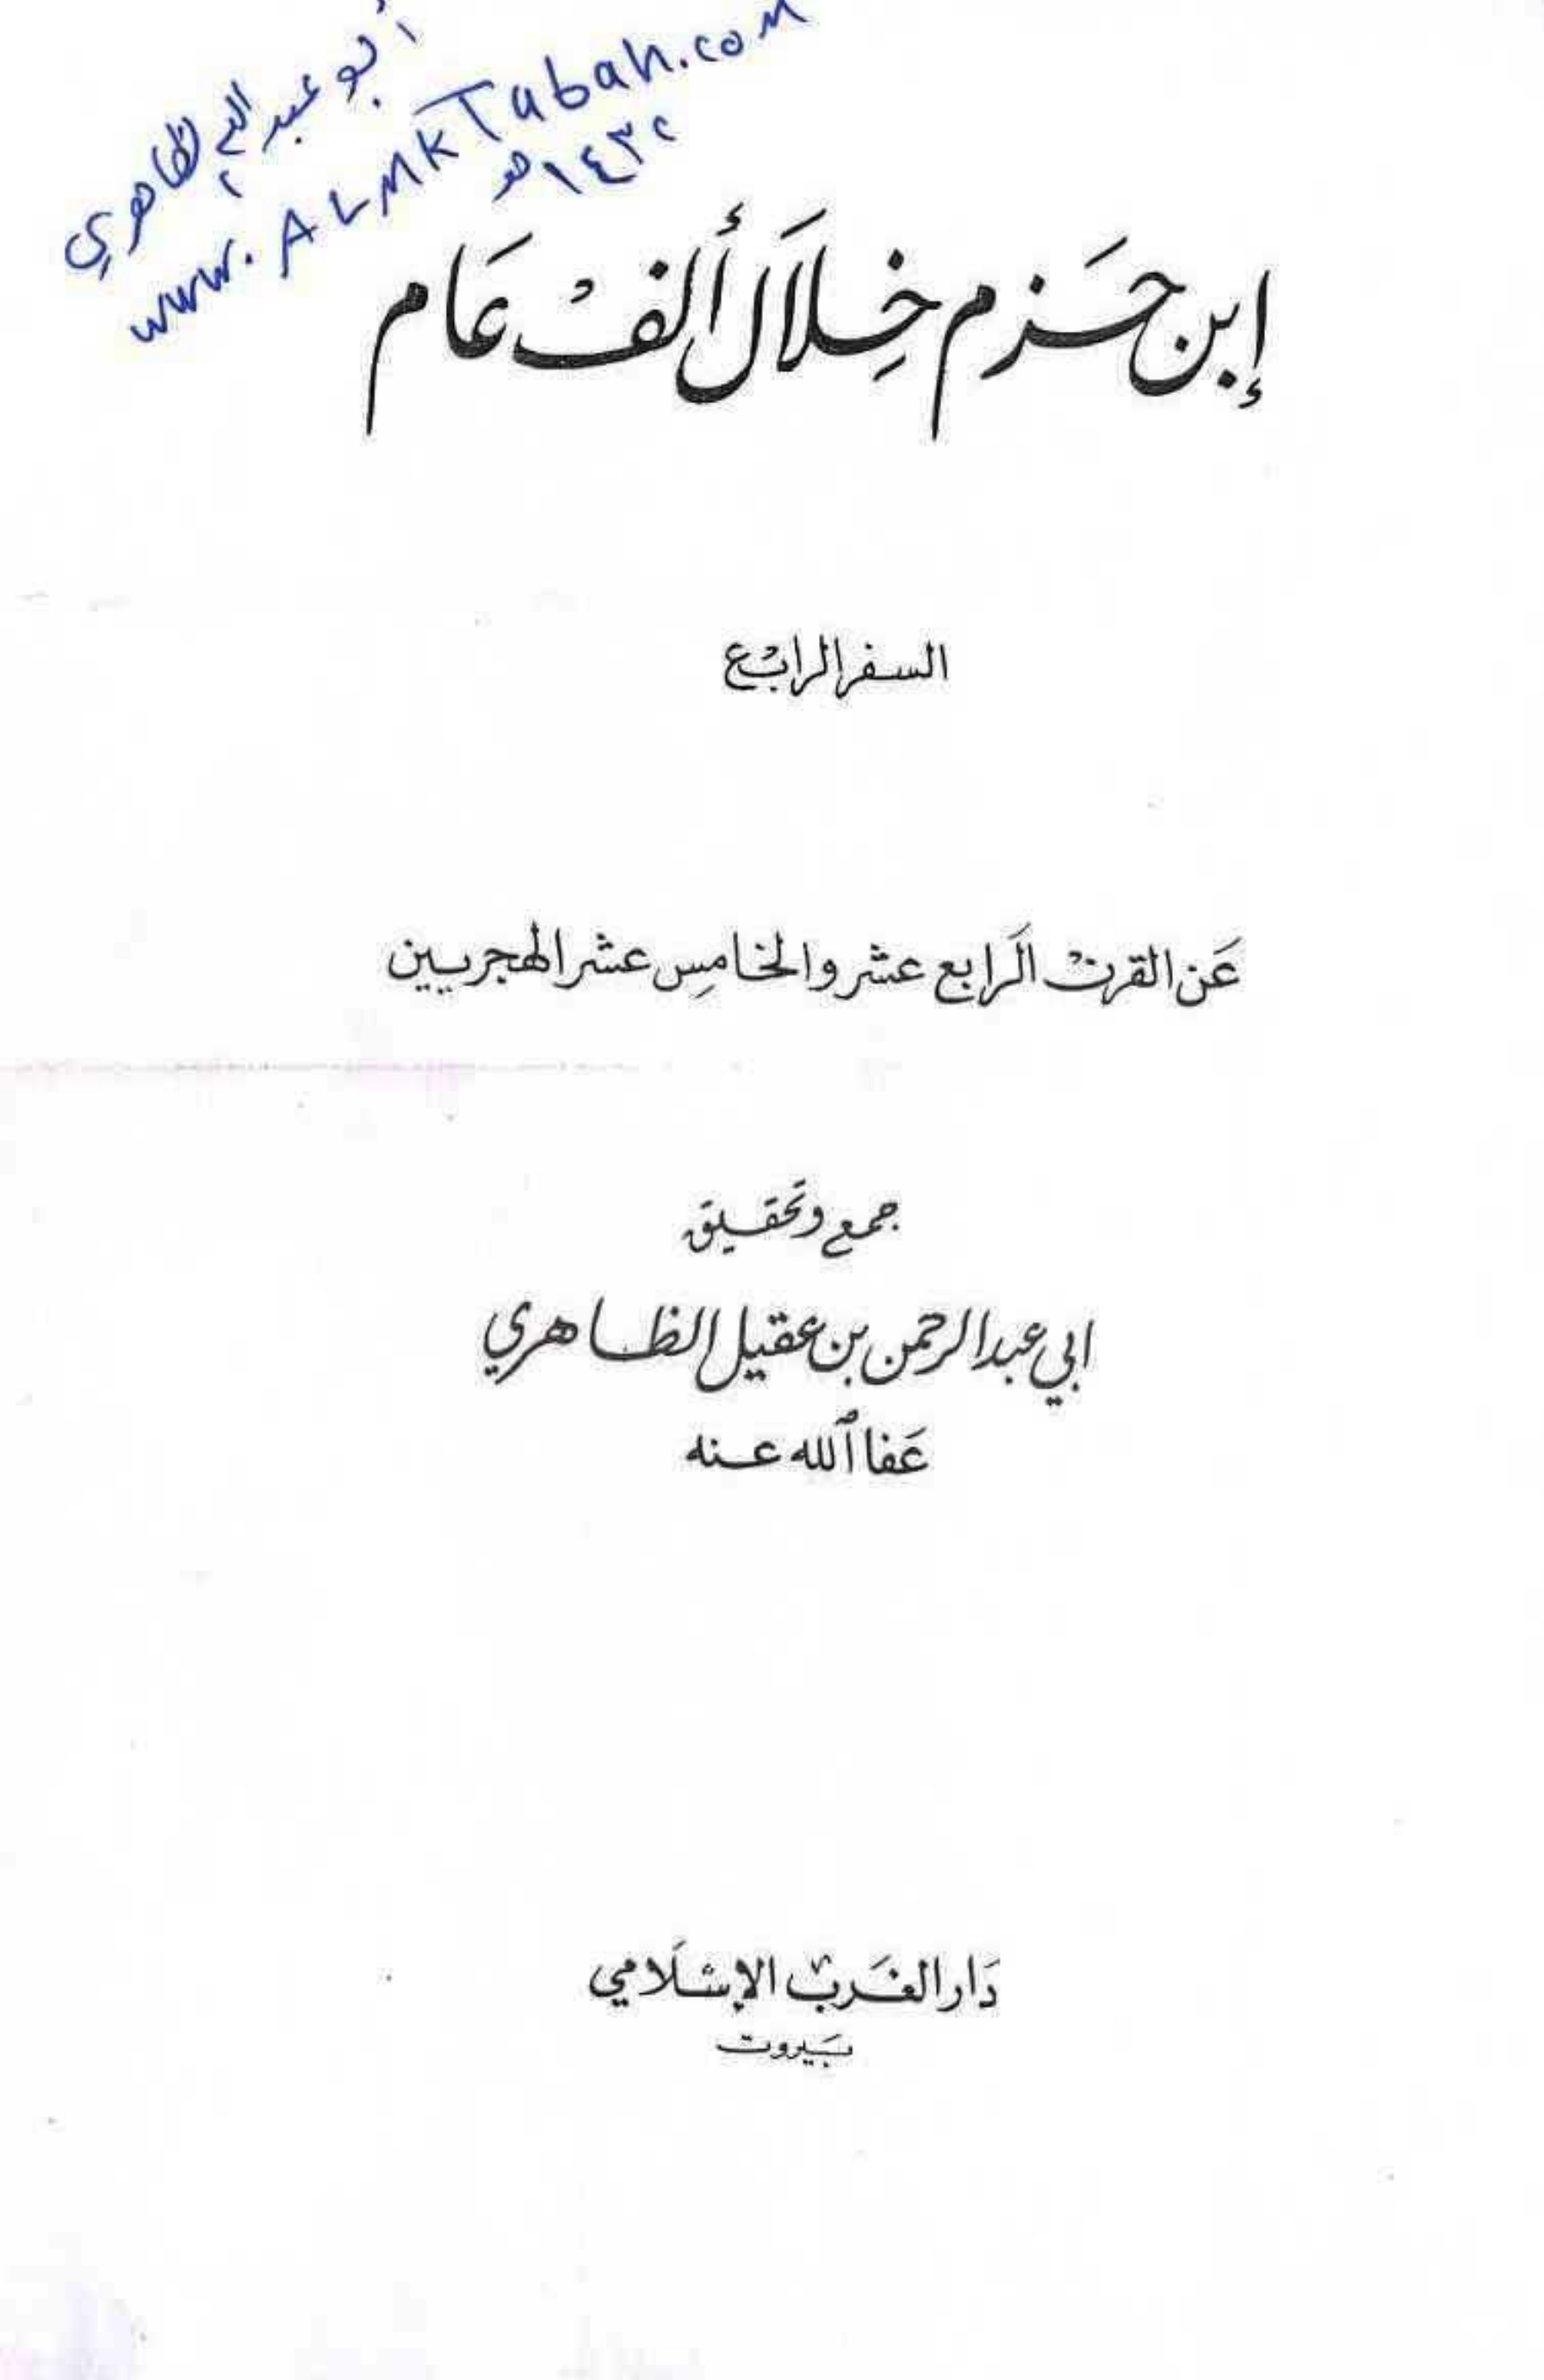 أبو عبد الله الظاهري
www.ALMKTabah.com
١٤٣٢هـ
إبن حَزم خِلَال ألفْ عَام
السفر الرابْع
عَن القرنْ الَرابع عشر والخامِس عشر الهجريين
جمع وتحَقيق
ابي عبد الرحمن بن عقيل الظاهري
عَفا ٱلله عنه
دَار الغَربْ الإسْلَامي
بَيروت